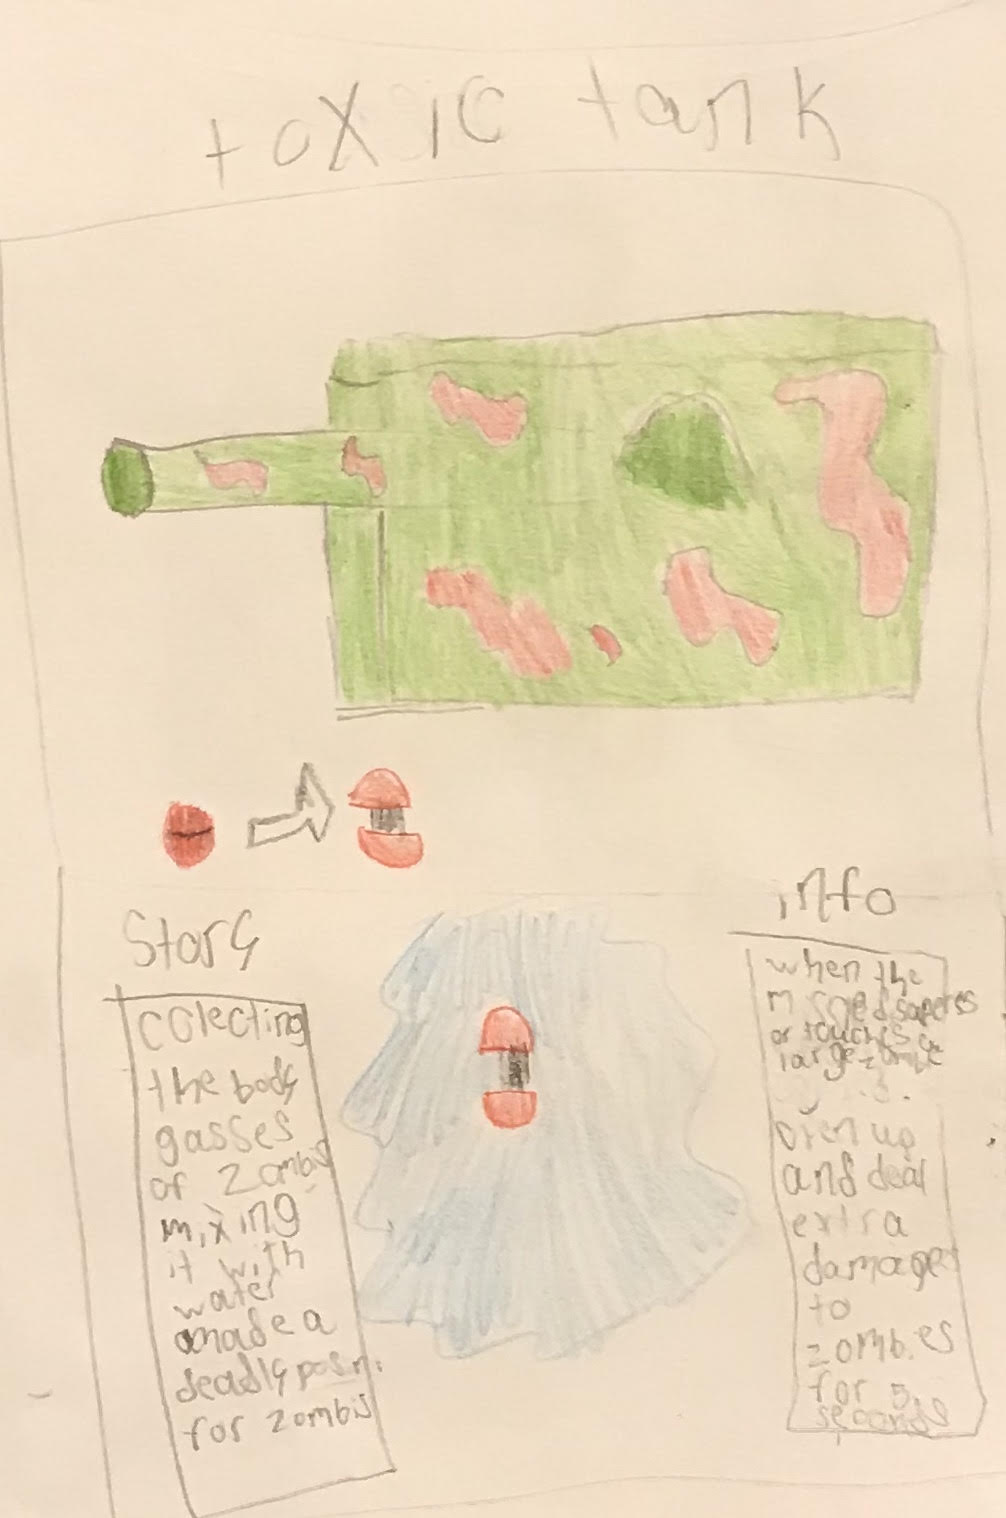 toxic tank
Story
colecting
the body
gasses
of zombis
mixing
it with
water
made a
deadly
for zombis
info
when the
or touches a
large zombie
open up
and deal
extra
damage
to
zombies
for 5
seconds